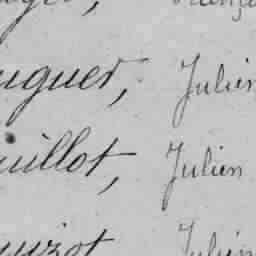 uguet, Julien
uillot, Julien
uizot Julien